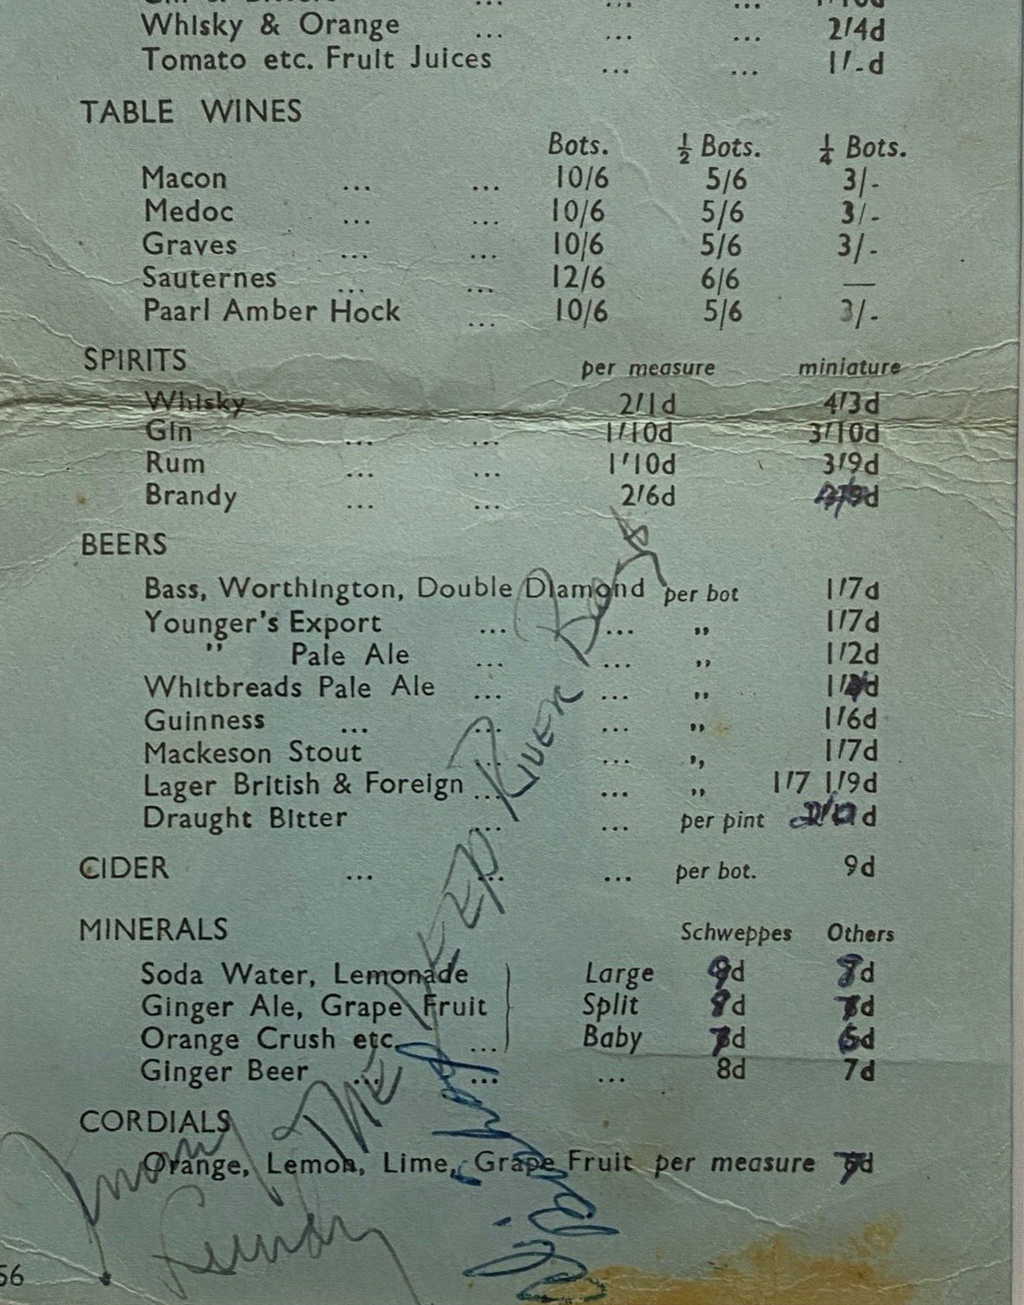 Whisky & Orange ... ... ... 2/4d
Tomato etc. Fruit Juices ... ... 1/-d
TABLE WINES
Bots. ½ Bots. ¼ Bots.
Macon ... ... 10/6 5/6 3/-
Medoc ... ... 10/6 5/6 3/-
Graves ... ... 10/6 5/6 3/-
Sauternes ... ... 12/6 6/6 —
Paarl Amber Hock ... 10/6 5/6 3/-
SPIRITS per measure miniature
Whisky 2/1d 4/3d
Gin ... ... 1/10d 3/10d
Rum ... ... 1/10d 3/9d
Brandy ... ... 2/6d
BEERS
Bass, Worthington, Double Diamond per bot 1/7d
Younger's Export ... ... „ 1/7d
" Pale Ale ... ... „ 1/2d
Whitbreads Pale Ale ... ... „
Guinness ... ... ... „ 1/6d
Mackeson Stout ... ... „ 1/7d
Lager British & Foreign ... ... „ 1/7 1/9d
Draught Bitter ... ... per pint
CIDER ... ... ... per bot. 9d
MINERALS Schweppes Others
Soda Water, Lemonade Large
Ginger Ale, Grape Fruit Split
Orange Crush etc. ... Baby
Ginger Beer ... ... ... 8d 7d
CORDIALS
Orange, Lemon, Lime, Grape Fruit per measure
THE KED RIVER Boys
56